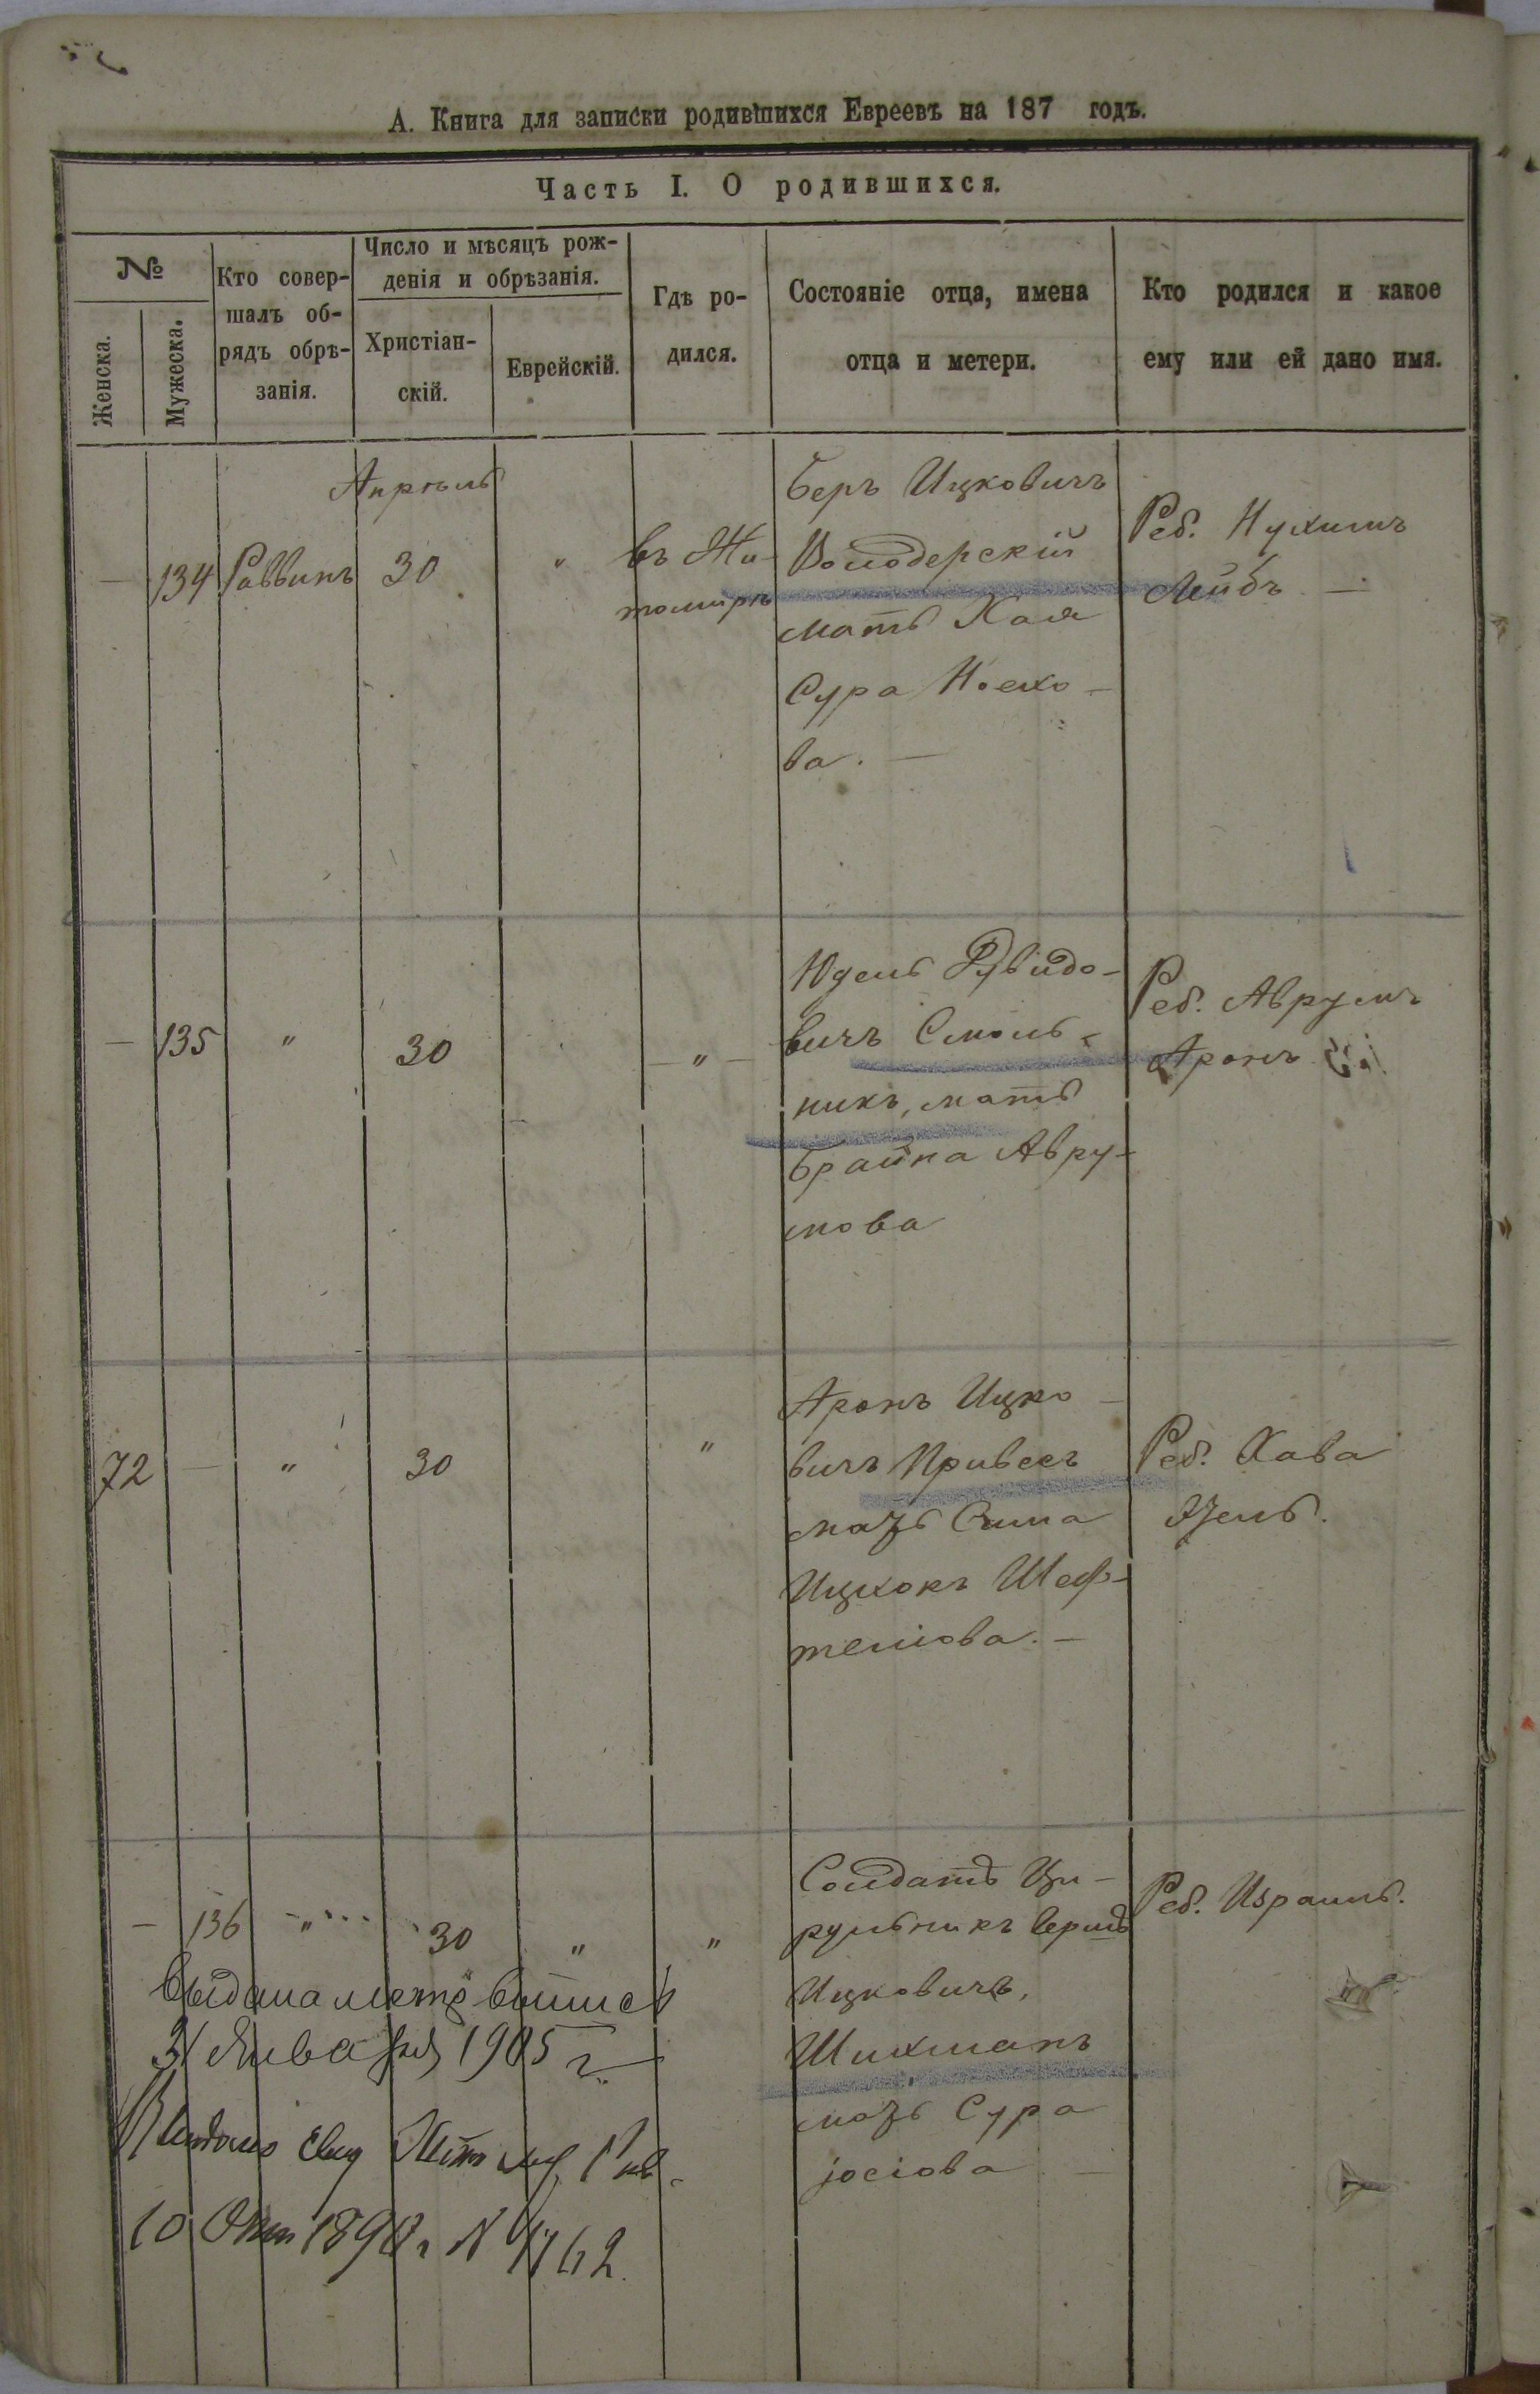 А. Книга для записки родившихся Евреевъ на 187 годъ.
Часть I. О родившихся.
№
Женска.
Мужеска.
Кто совер-
шалъ об-
рядъ обрѣ-
занія.
Число и мѣсяцъ рож-
денія и обрѣзанія.
Христіан-
скій.
Еврейскій.
Гдѣ ро-
дился.
Состояніе отца, имена
отца и метери.
Кто родился и какое
ему или ей дано имя.
Апрѣль
— 134 Раввинъ 30 "
въ Жи-
томирѣ
Беръ Ицковичъ
Володерскій
мать Хая
Сура Носхо-
ва. —
Реб. Нухимъ
Лейбъ —
— 135 " 30 — " —
Юдель Рувидо-
вичъ Смоль-
никъ, мать
Брайна Авру-
мова
Реб. Аврумъ
Аронъ
72 — " 30 "
Аронъ Ицко-
вичъ Привесъ
мать Сима
Ицхокъ Шеф-
телiова. —
Реб. Хава
Эзель.
— 136 " 30 " "
Солдатъ Ци-
рульникъ Берко
Ицковичъ,
Шихманъ
мать Сура
іосіова —
Реб. Израиль.
Выдана метр выпись
31 Января 1905 г.
Выдано свид
10 Окт 1890 г N 1762.